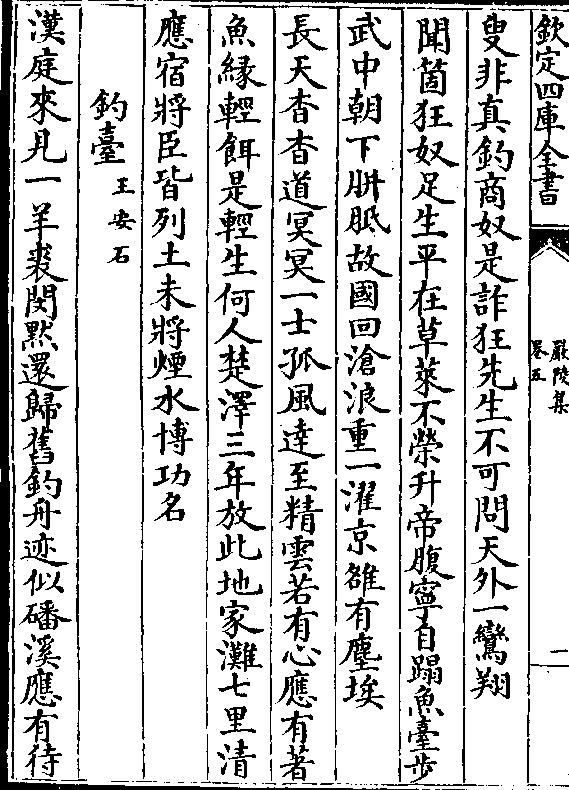 欽定四庫全書
嚴陵集
卷五
二
叟非真釣商奴是詐狂先生不可問天外一鸞翔
聞箇狂奴足生平在草萊不榮升帝腹寧自蹋魚臺步
武中朝下胼胝故國回滄浪重一濯京雒有塵埃
長天杳杳道冥冥一士孤風達至精雲若有心應有著
魚緣輕餌是輕生何人楚澤三年放此地家灘七里清
應宿將臣皆列土未將煙水博功名
釣臺
王安石
漢庭來見一羊裘閔黙還歸舊釣舟迹似磻溪應有待